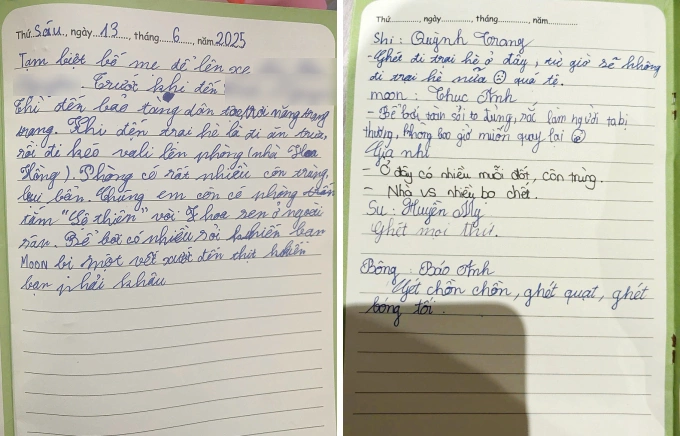 Thứ Sáu, ngày 13, tháng 6, năm 2025
Tạm biệt bố mẹ để lên xe
Trước khi đến:
Thì đến bảo tàng dân tộc, trời nắng trang
trang. Khi đến trại hè là đi ăn trưa,
rồi đi kéo vali lên phòng (nhà Hoa
Hồng). Phòng có rất nhiều côn trùng,
bụi bẩn. Chúng em còn có phòng
tắm "lộ thiên" với 2 hoa sen ở ngoài
sân. Bể bơi có nhiều sỏi khiến bạn
MOON bị một vết xước đến thịt khiến
bạn phải khâu
Thứ, ngày, tháng, năm
Shi: Quỳnh Trang
- Ghét đi trại hè ở đây, từ giờ sẽ không
đi trại hè nữa quá tệ.
moon: Thục Anh
- Bể bơi toàn sỏi to đùng, sắc làm người ta bị
thương, không bao giờ muốn quay lại
Gia nhi
- Ở đây có nhiều muỗi đốt, côn trùng.
- Nhà vs nhiều bọ chét.
Su: Huyền My
Ghét mọi thứ.
Bông: Bảo Anh
Ghét chăn, ghét quạt, ghét
bóng tối.